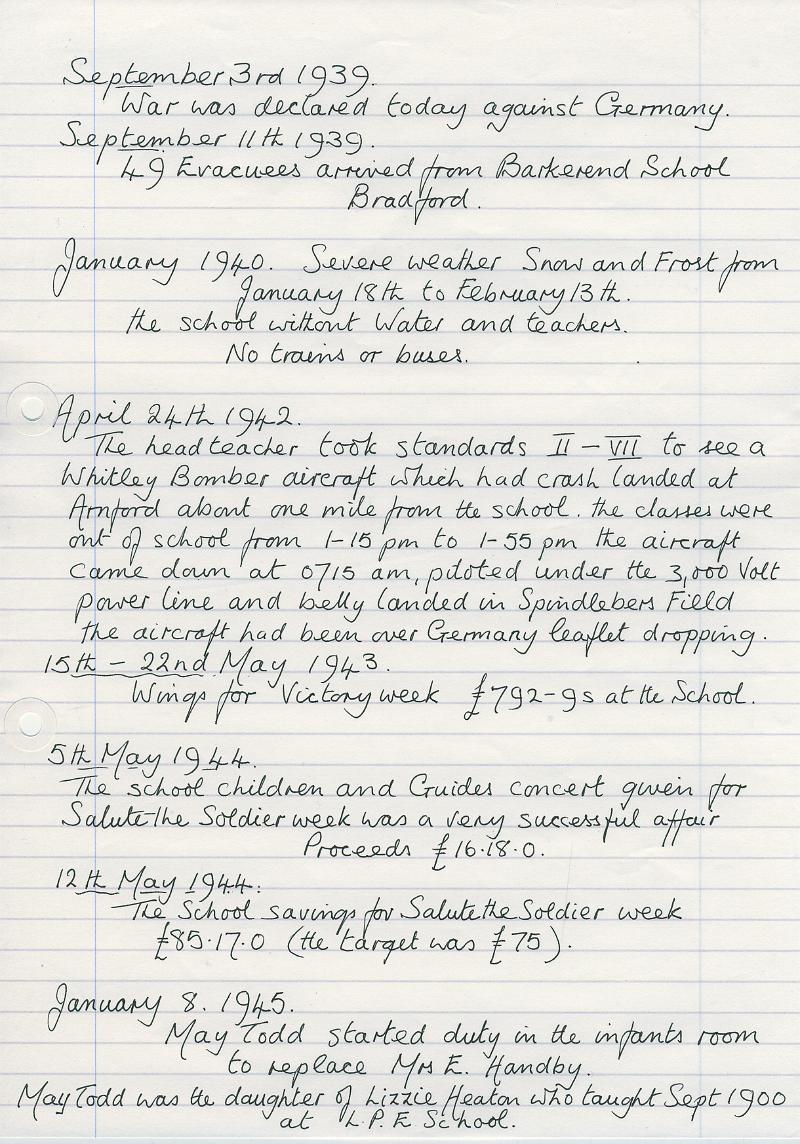 September 3rd 1939.
War was declared today against Germany.
September 11th 1939.
49 Evacuees arrived from Barkerend School
Bradford.
January 1940. Severe weather Snow and Frost from
January 18th to February 13th.
the school without Water and teachers.
No trains or buses.
April 24th 1942.
The headteacher took standards II - VII to see a
Whitley Bomber aircraft which had crash landed at
Arnford about one mile from the school. the classes were
out of school from 1-15 pm to 1-55 pm the aircraft
came down at 0715 am, piloted under the 3,000 Volt
power line and belly landed in Spindlebers Field
the aircraft had been over Germany leaflet dropping.
15th - 22nd May 1943.
Wings for Victory week £792-9s at the School.
5th May 1944.
The school children and Guides concert given for
Salute the Soldier week was a very successful affair
Proceeds £16.18.0.
12th May 1944.
The School savings for Salute the Soldier week
£85.17.0 (the target was £75).
January 8. 1945.
May Todd started duty in the infants room
to replace Mrs E. Handby.
May Todd was the daughter of Lizzie Heaton who taught Sept 1900
at L.P.E School.